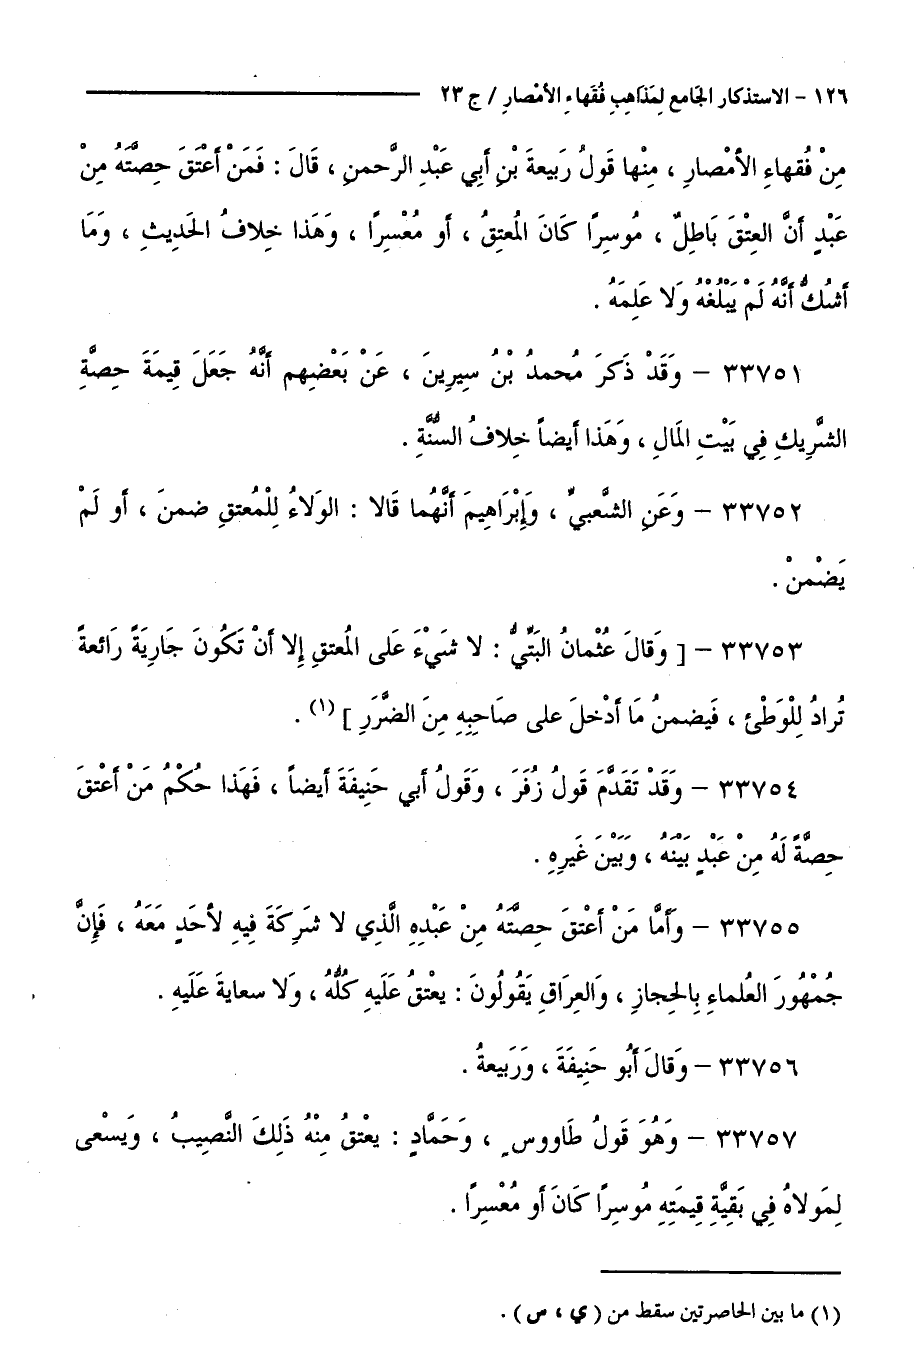 ١٢٦ - الاستذكار الجَامع لِمَذاهِبِ فُقَهاءِ الأمْصارِ / ج ٢٣
مِنْ فُقهاءِ الأمْصارِ ، مِنْها قَولُ رَبيعةَ بْنِ أبِي عَبْدِ الرَّحمنِ ، قَالَ : فَمَنْ أعْتَقَ حِصَّتَهُ مِنْ
عَبْدٍ أنَّ العِتْقَ بَاطِلٌ ، مُوسِرًا كَانَ المُعتِقُ ، أو مُعْسِرًا ، وَهَذا خِلافُ الحَديثِ ، وَمَا
أشُكُّ أنَّهُ لَمْ يَبْلُغْهُ وَلا عَلِمَهُ .
٣٣٧٥١ - وَقَدْ ذَكرَ مُحمدُ بْنُ سِيرينَ ، عَنْ بَعْضِهم أنَّهُ جَعَلَ قِيمَةَ حِصَّةِ
الشَّرِيكِ فِي بَيْتِ المَالِ ، وَهَذا أيضاً خِلافُ السُّنَّةِ .
٣٣٧٥٢ - وَعَنِ الشَّعبيِّ ، وَإِبْرَاهِيمَ أنَّهُما قَالا : الوَلاءُ لِلْمُعتقِ ضمنَ ، أو لَمْ
يَضْمنْ .
٣٣٧٥٣ - [ وَقالَ عثْمانُ البَتِّيُّ : لا شَيْءَ عَلى المُعتقِ إِلا أنْ تَكُونَ جَارِيَةً رَائعةً
تُرادُ لِلْوَطْئِ ، فَيضمنُ مَا أدْخلَ على صَاحِبِهِ مِنَ الضَّرَرِ ] (١) .
٣٣٧٥٤ - وَقَدْ تَقَدَّمَ قَولُ زُفَرَ ، وَقَولُ أبي حَنِيفَةَ أيضاً ، فَهَذا حُكْمُ مَنْ أعْتقَ
حِصَّةً لَهُ مِنْ عَبْدٍ بَيْنَهُ ، وَبَيْنَ غَيرِهِ .
٣٣٧٥٥ - وَأمَّا مَنْ أعْتقَ حِصَّتَهُ مِنْ عَبْدِهِ الَّذِي لا شَرِكَةَ فِيهِ لأحَدٍ مَعَهُ ، فَإِنَّ
جُمْهُورَ العُلماءِ بِالحِجازِ ، وَالعِراقِ يَقُولُونَ : يعْتقُ عَلَيهِ كُلُّهُ ، وَلا سعايةَ عَلَيهِ .
٣٣٧٥٦ - وَقَالَ أبُو حَنِيفَةَ ، وَرَبيعةُ .
٣٣٧٥٧ - وَهُوَ قَولُ طَاووسٍ ، وَحَمَّادٍ : يعْتقُ مِنْهُ ذَلِكَ النَّصِيبُ ، وَيَسْعى
لِمَولاهُ فِي بَقِيَّةِ قِيمَتِهِ مُوسِرًا كَانَ أو مُعْسِرًا .
(١) ما بين الحاصرتين سقط من ( ي ، س ) .